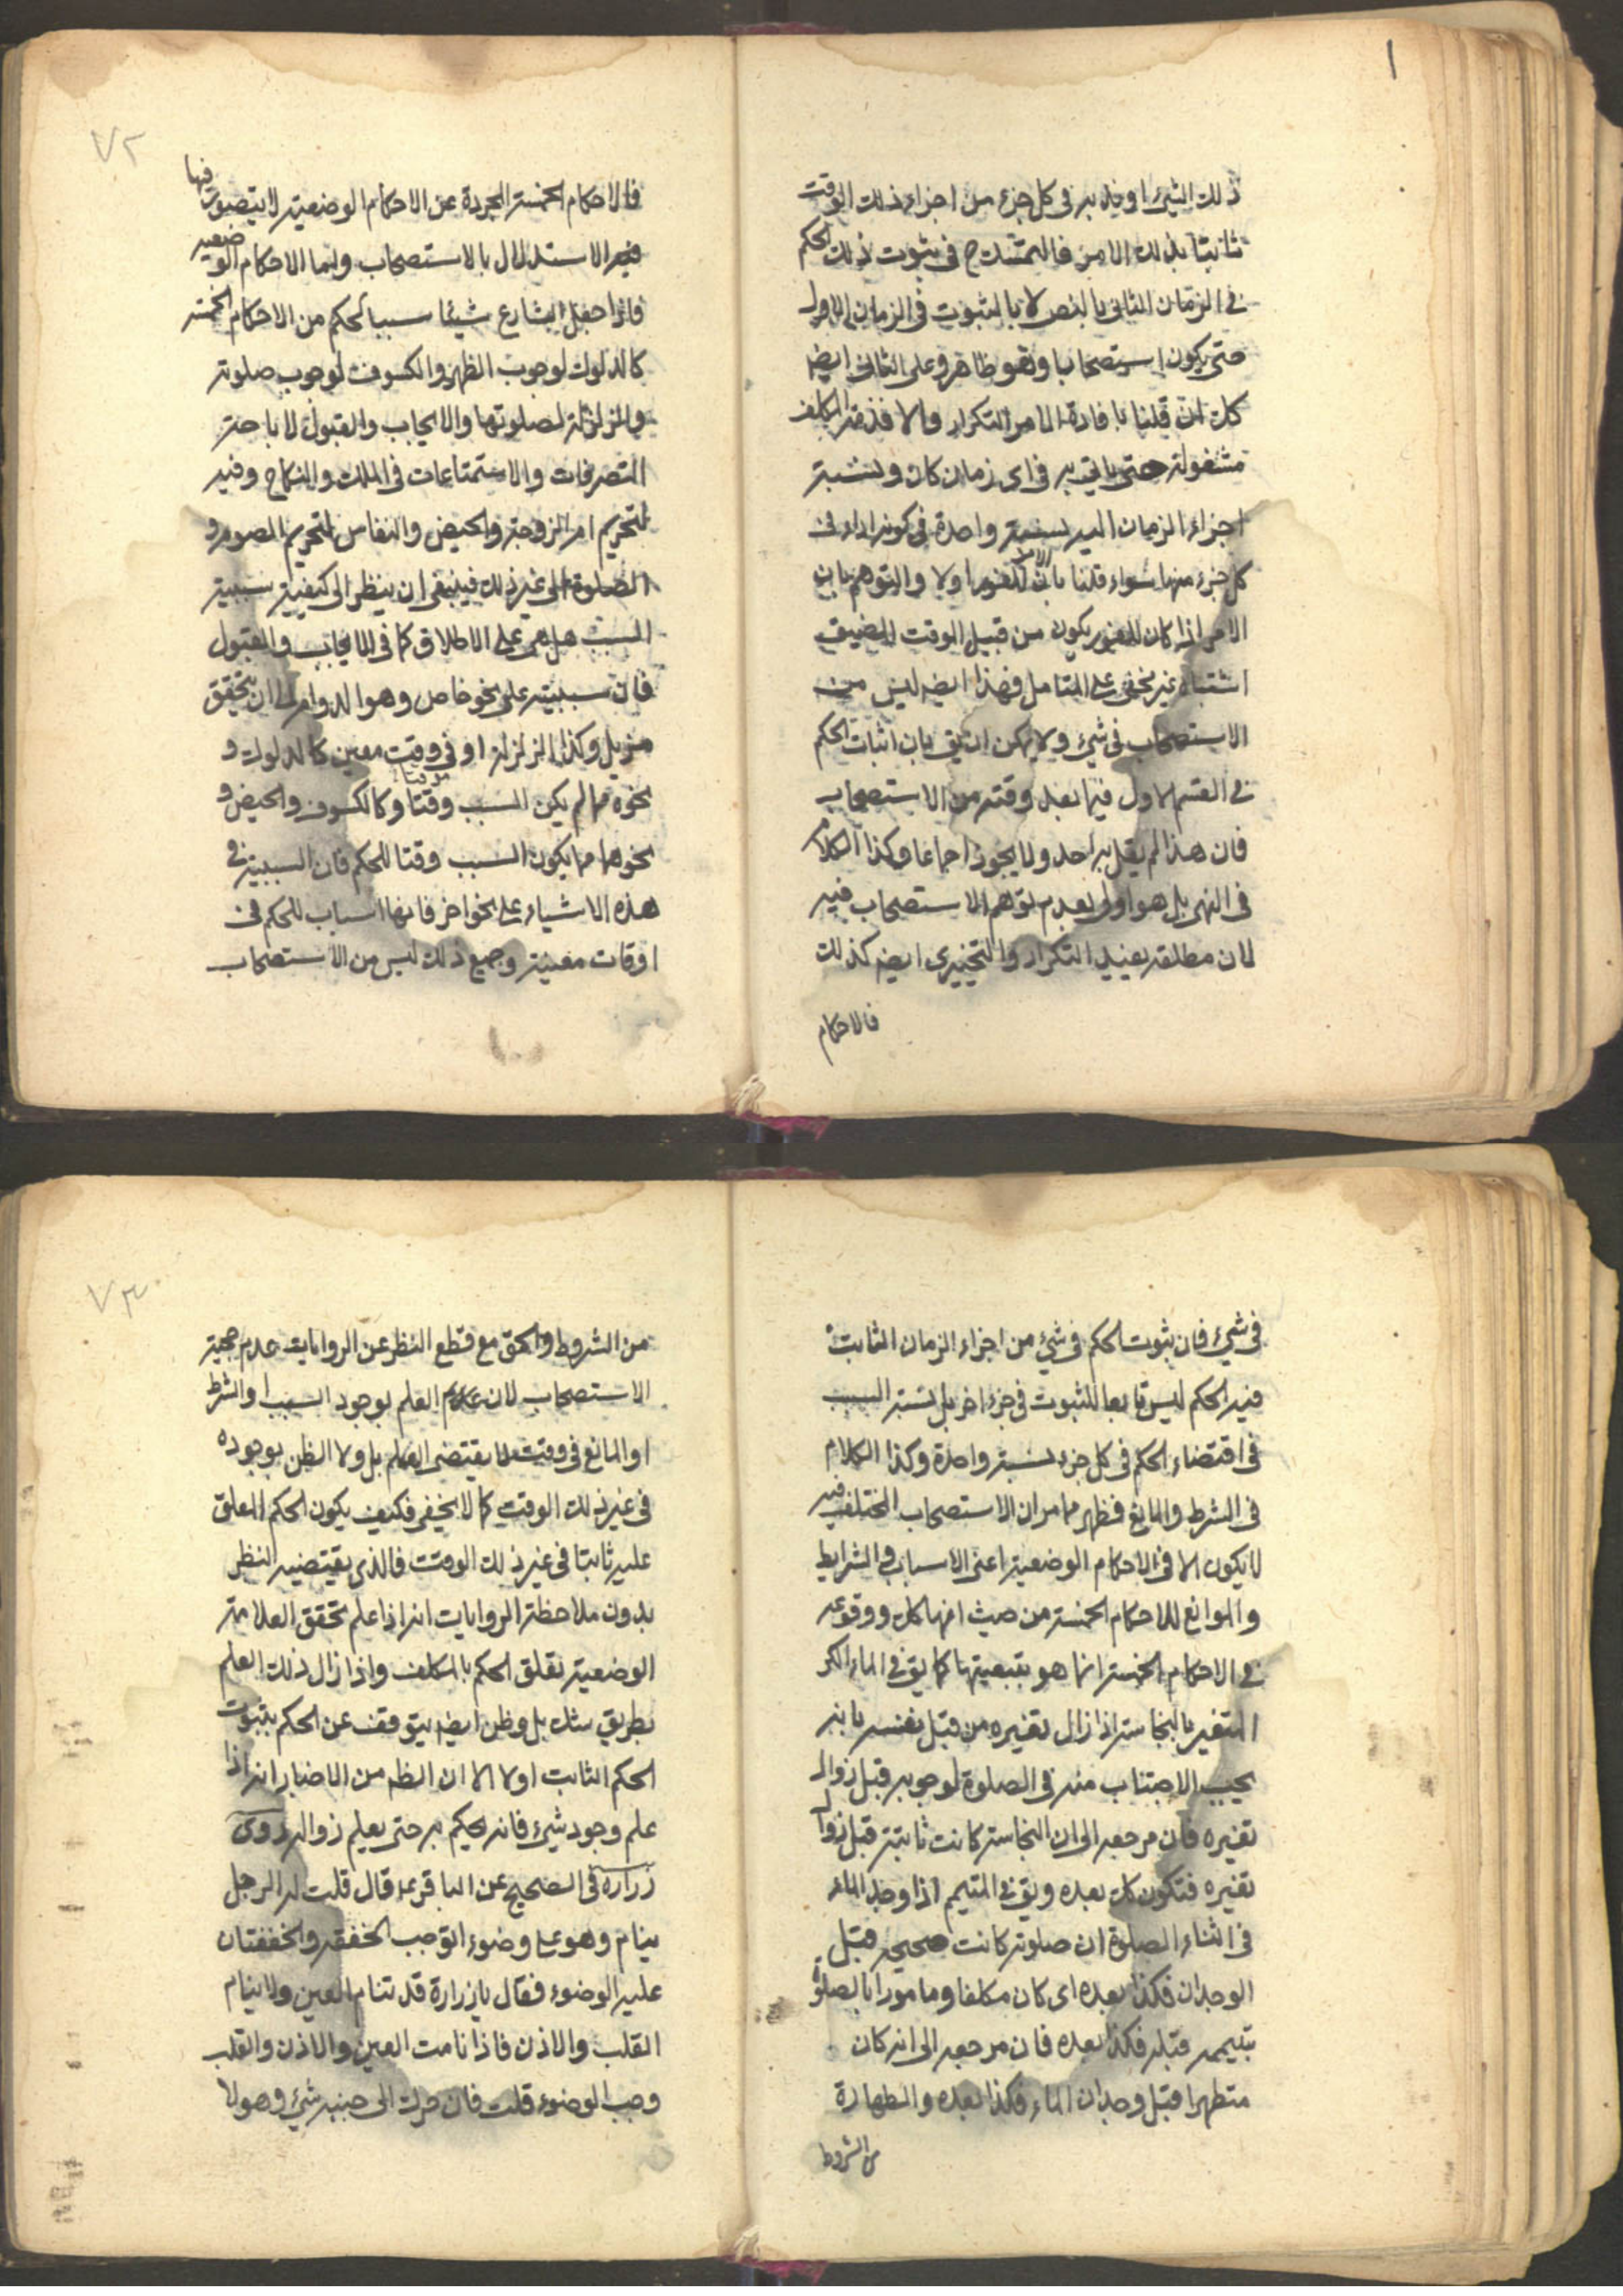 ١
ذلك الشئ او يخل به فى كل جزء من اجزاء ذلك الوقت
ثابتا بذلك الامر فالتمسك ح فى ثبوت ذلك الحكم
فى الزمان الثانى بالنص لا بالثبوت فى الزمان الاول
حتى يكون استصحابا وهو ظاهر وعلى الثانى ايضه
كك ان قلنا بافادة الامر التكرار والا فذمة المكلف
مشغولة حتى ياتى به فى اى زمان كان ونسبة
اجزاء الزمان اليه نسبة واحدة فى كونه اداء فى
كل جزء منها سواء قلنا بان الامر للفور اولا والتوهم بان
الامر اذا كان للفور يكون من قبيل الوقت المضيق
اشتباه غير مخفى على المتامل فهذا ايضه ليس من
الاستصحاب فى شئ ولا يمكن ان يق بان اثبات الحكم
فى القسم الاول فيما بعد وقته من الاستصحاب
فان هذا لم يقل به احد ولا يجوز اجماعا وكذا الكلام
فى النهى بل هو اولى بعدم توهم الاستصحاب فيه
لان مطلقه يفيد التكرار والتخييرى ايضه كذلك
فالاحكام
٧٢
فالاحكام الخمسة المجردة عن الاحكام الوضعية لا يتصور فيها
فيه الاستدلال بالاستصحاب واما الاحكام الوضعيه
فاذا جعل الشارع شيئا سببا لحكم من الاحكام الخمسة
كالدلوك لوجوب الظهر والكسوف لوجوب صلوته
والزلزلة لصلوتها والايجاب والقبول لاباحة
التصرفات والاستمتاعات فى الملك والنكاح وفيه
لتحريم ام الزوجة والحيض والنفاس لتحريم الصوم و
الصلوة الى غير ذلك فينبغى ان ينظر الى كيفية سببية
السبب هل هى على الاطلاق كما فى الايجاب والقبول
فان سببيته على نحو خاص وهو الدوام الى ان يتحقق
مزيل وكذا الزلزلة او فى وقت معين كالدلوك و
نحوه مما لم يكن السبب وقتا وكالكسوف والحيض و
نحوهما مما يكون السبب وقتا للحكم فان السببية فى
هذه الاشياء على نحو اخر فانها اسباب للحكم فى
اوقات معينة وجميع ذلك ليس من الاستصحاب
فى شئ فان ثبوت الحكم فى شئ من اجزاء الزمان الثابت
فيه الحكم ليس تابعا للثبوت فى جزء اخر بل نسبة السبب
فى اقتضاء الحكم فى كل جزء نسبة واحدة وكذا الكلام
فى الشرط والمانع فظهر مما مر ان الاستصحاب المختلف فيه
لا يكون الا فى الاحكام الوضعية اعنى الاسباب والشرايط
والموانع للاحكام الخمسة من حيث انها كك ووقوعه
فى الاحكام الخمسة انما هو بتبعيتها كما يق فى الماء الكر
المتغير بالنجاسة اذا زال تغيره من قبل نفسه بانه
يجب الاجتناب منه فى الصلوة لوجوبه قبل زوال
تغيره فان مرجعه الى ان النجاسة كانت ثابتة قبل زوال
تغيره فتكون كك بعده ويق فى المتيمم اذا وجد الماء
فى اثناء الصلوة ان صلوته كانت صحيحه قبل
الوجدان فكذا بعده اى كان مكلفا ومامورا بالصلوة
بتيممه قبله فكذا بعده فان مرجعه الى انه كان
متطهرا قبل وجدان الماء فكذا بعده والطهارة
من الشروط
٧٣
من الشروط والحق مع قطع النظر عن الروايات عدم حجية
الاستصحاب لان العلم بوجود السبب او الشرط
او المانع فى وقت لا يقتضى العلم بل ولا الظن بوجوده
فى غير ذلك الوقت كما لا يخفى فكيف يكون الحكم المعلق
عليه ثابتا فى غير ذلك الوقت فالذى يقتضيه النظر
بدون ملاحظة الروايات انه اذا علم تحقق العلامة
الوضعية تعلق الحكم بالمكلف واذا زال ذلك العلم
بطريق شك بل وظن ايضه يتوقف عن الحكم بثبوت
الحكم الثابت اولا الا ان الظم من الاخبار انه اذا
علم وجود شئ فانه يحكم به حتى يعلم زواله روى
زرارة فى الصحيح عن الباقر ع قال قلت له الرجل
ينام وهو على وضوء اتوجب الخفقة والخفقتان
عليه الوضوء فقال يا زرارة قد تنام العين ولا ينام
القلب والاذن فاذا نامت العين والاذن والقلب
وجب الوضوء قلت فان حرك الى جنبه شئ وهو لا